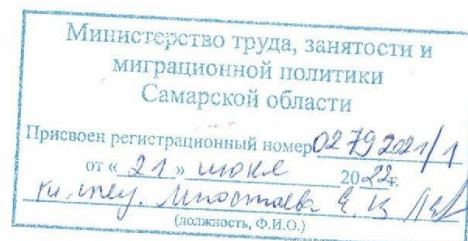 Министерство труда, занятости и
миграционной политики
Самарской области
Присвоен регистрационный номер 02792021/1
от « 21 » июня 2022г.
Е. В.
(должность, Ф.И.О.)